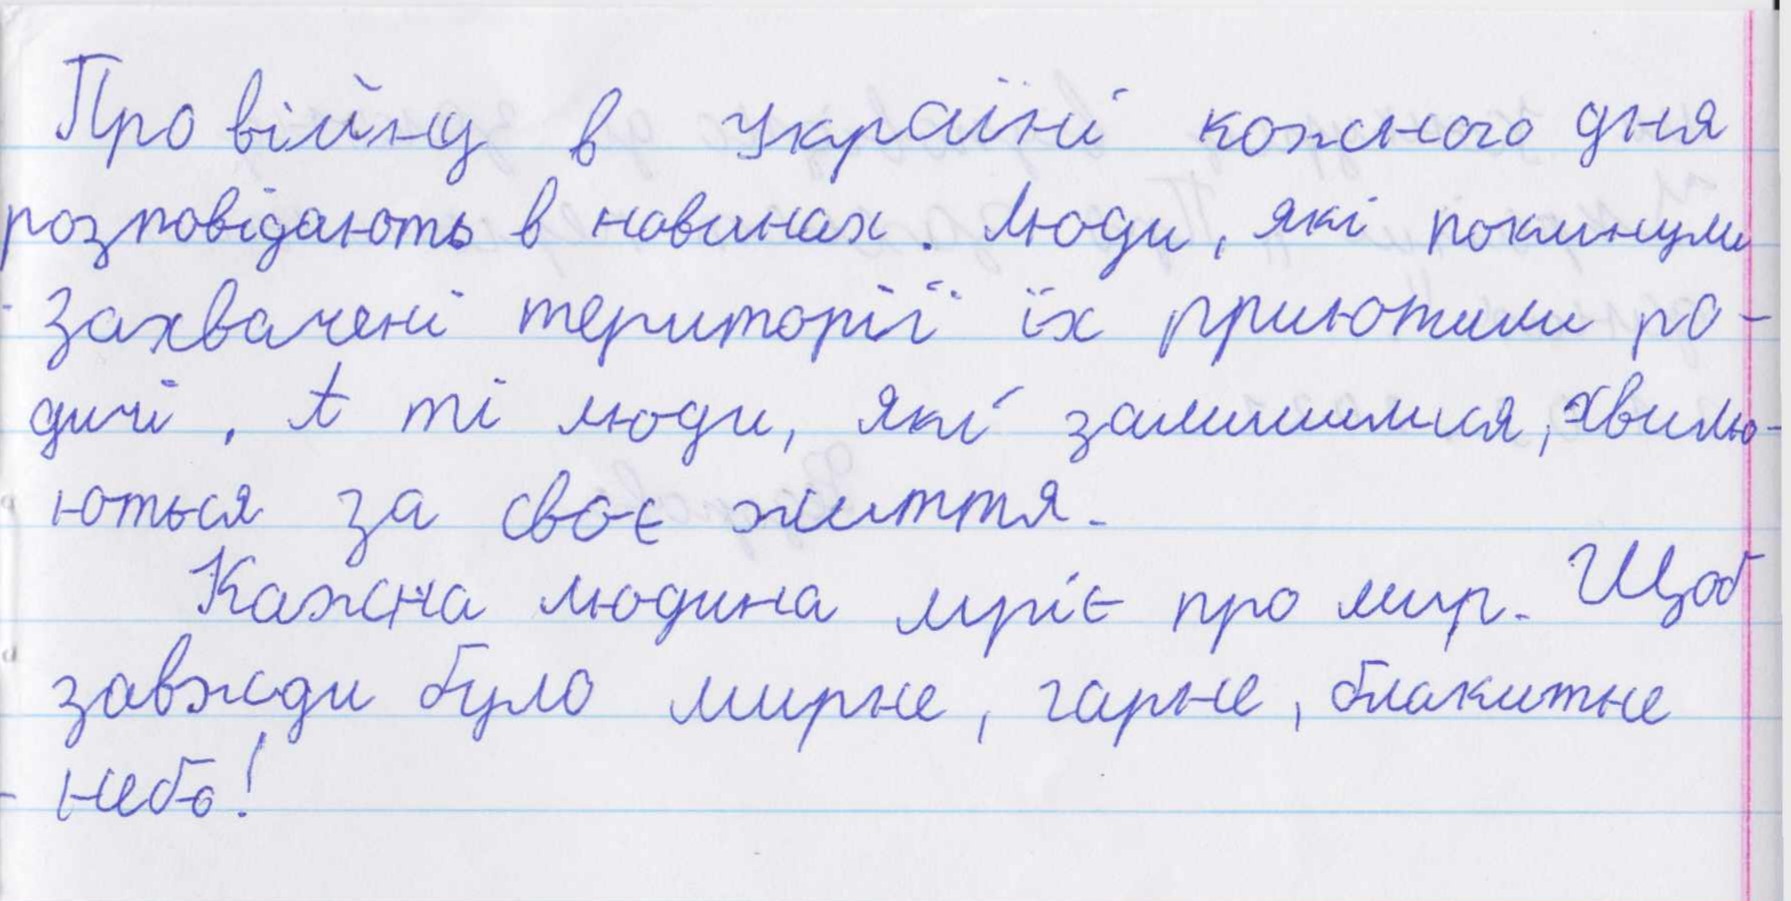 Про війну в Україні кожного дня
розповідають в новинах. Люди, які покинули
захвачені території їх приютили ро-
дичі. А ті люди, які залишилися, хвилю-
ються за своє життя.
Кажна людина мріє про мир. Щоб
завжди було мирне, гарне, блакитне
небо!